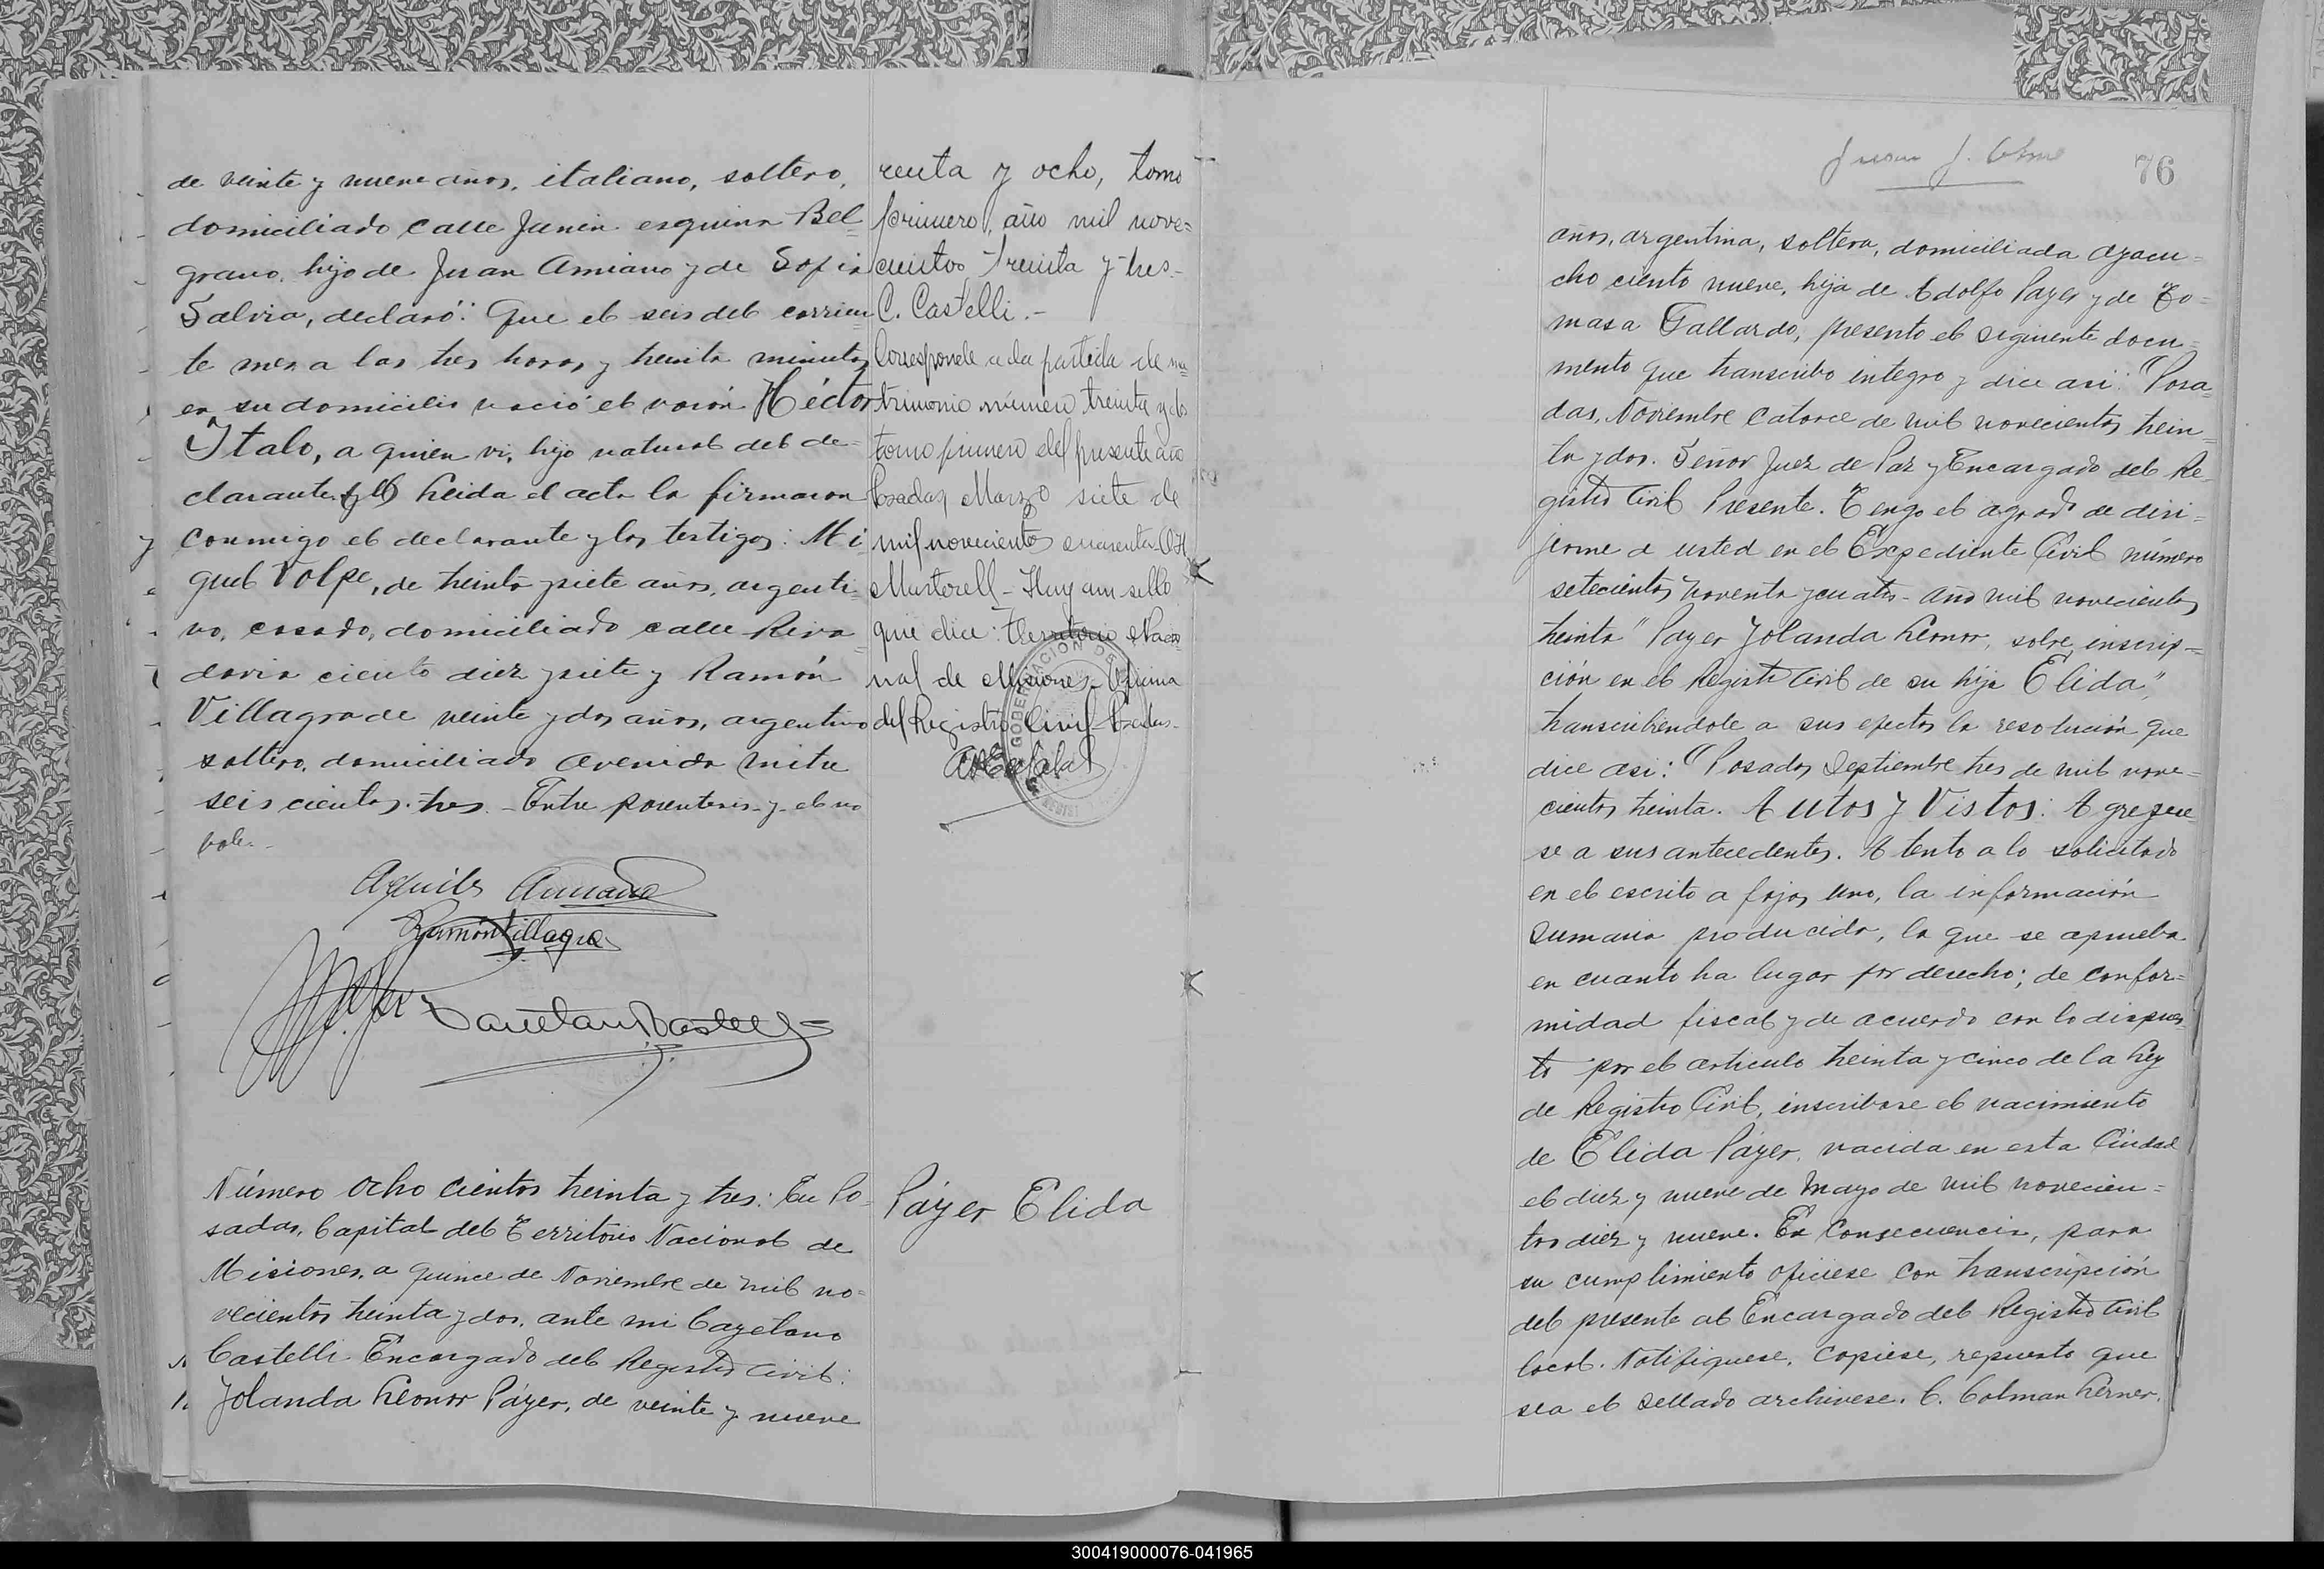 de veinte y nueve años, italiano, soltero,
domiciliado calle Junin esquina Bel-
grano, hijo de Juan Amiano y de Sofia
Salvia, declaró: Que el seis del corrien
te mes a las tres horas y treinta minutos
en su domicilio nació el varón Héctor
Italo, a quien vi, hijo natural del de-
clarante (y el) Leida el acta la firmaron
conmigo el declarante y los testigos: Mi
guel Volpe, de treinta y siete años, argenti-
no, casado, domiciliado calle Riva-
davia ciento diez y siete y Ramón
Villagra de veinte y dos años, argentino
soltero, domiciliado Avenida Mitre
seis cientos tres. - Entre parentesis - y el no
vale.-
Aquiles Amiano
Ramón Villagra
Cayetano Castelli
Número Ocho cientos treinta y tres: En Po-
sadas, Capital del Territorio Nacional de
Misiones, a quince de Noviembre de mil no-
vecientos treinta y dos, ante mi Cayetano
Castelli Encargado del Registro Civil:
Jolanda Leonor Páyer, de veinte y nueve
renta y ocho, tomo
primero, año mil nove=
cientos treinta y tres.-
C. Castelli.-
Corresponde a la partida de ma=
trimonio número treinta y dos
tomo primero del presente año
Posadas, Marzo siete de
mil novecientos cuarenta
Martorell - Hay un sello
que dice: Territorio Nacio
nal de Misiones - Oficina
del Registro Civil - Posadas.-
GOBERNACION DE
Páyer Elida
Juan J.
76
años, argentina, soltera, domiciliada Ayacu-
cho ciento nueve, hija de Adolfo Payer y de To-
masa Gallardo, presento el siguiente docu-
mento que transcribo integro y dice asi: "Posa
das, Noviembre catorce de mil novecientos trein-
ta y dos. Señor Juez de Paz y Encargado del Re-
gistro Civil Presente. Tengo el agrado de diri-
jirme a usted en el Expediente Civil número
setecientos noventa y cuatro - año mil novecientos
treinta" Payer Jolanda Leonor, sobre inscrip-
ción en el Registro Civil de su hija Elida",
transcribendole a sus efectos la resolución que
dice asi: "Posadas Septiembre tres de mil nove-
cientos treinta. Autos y Vistos: Agregue
se a sus antecedentes. Atento a lo solicitado
en el escrito a fojas uno, la información
sumaria producida, la que se aprueba
en cuanto ha lugar por derecho; de confor=
midad fiscal y de acuerdo con lo dispues-
to por el articulo treinta y cinco de la Ley
de Registro Civil, inscribase el nacimiento
de Elida Páyer, nacida en esta Ciudad
el diez y nueve de Mayo de mil novecien=
tos diez y nueve. En Consecuencia, para
su cumplimiento oficiese con transcripción
del presente al Encargado del Registro Civil
local. Notifiquese, copiese, repuesto que
sea el sellado archivese. C. Colman Lerner.
300419000076-041965